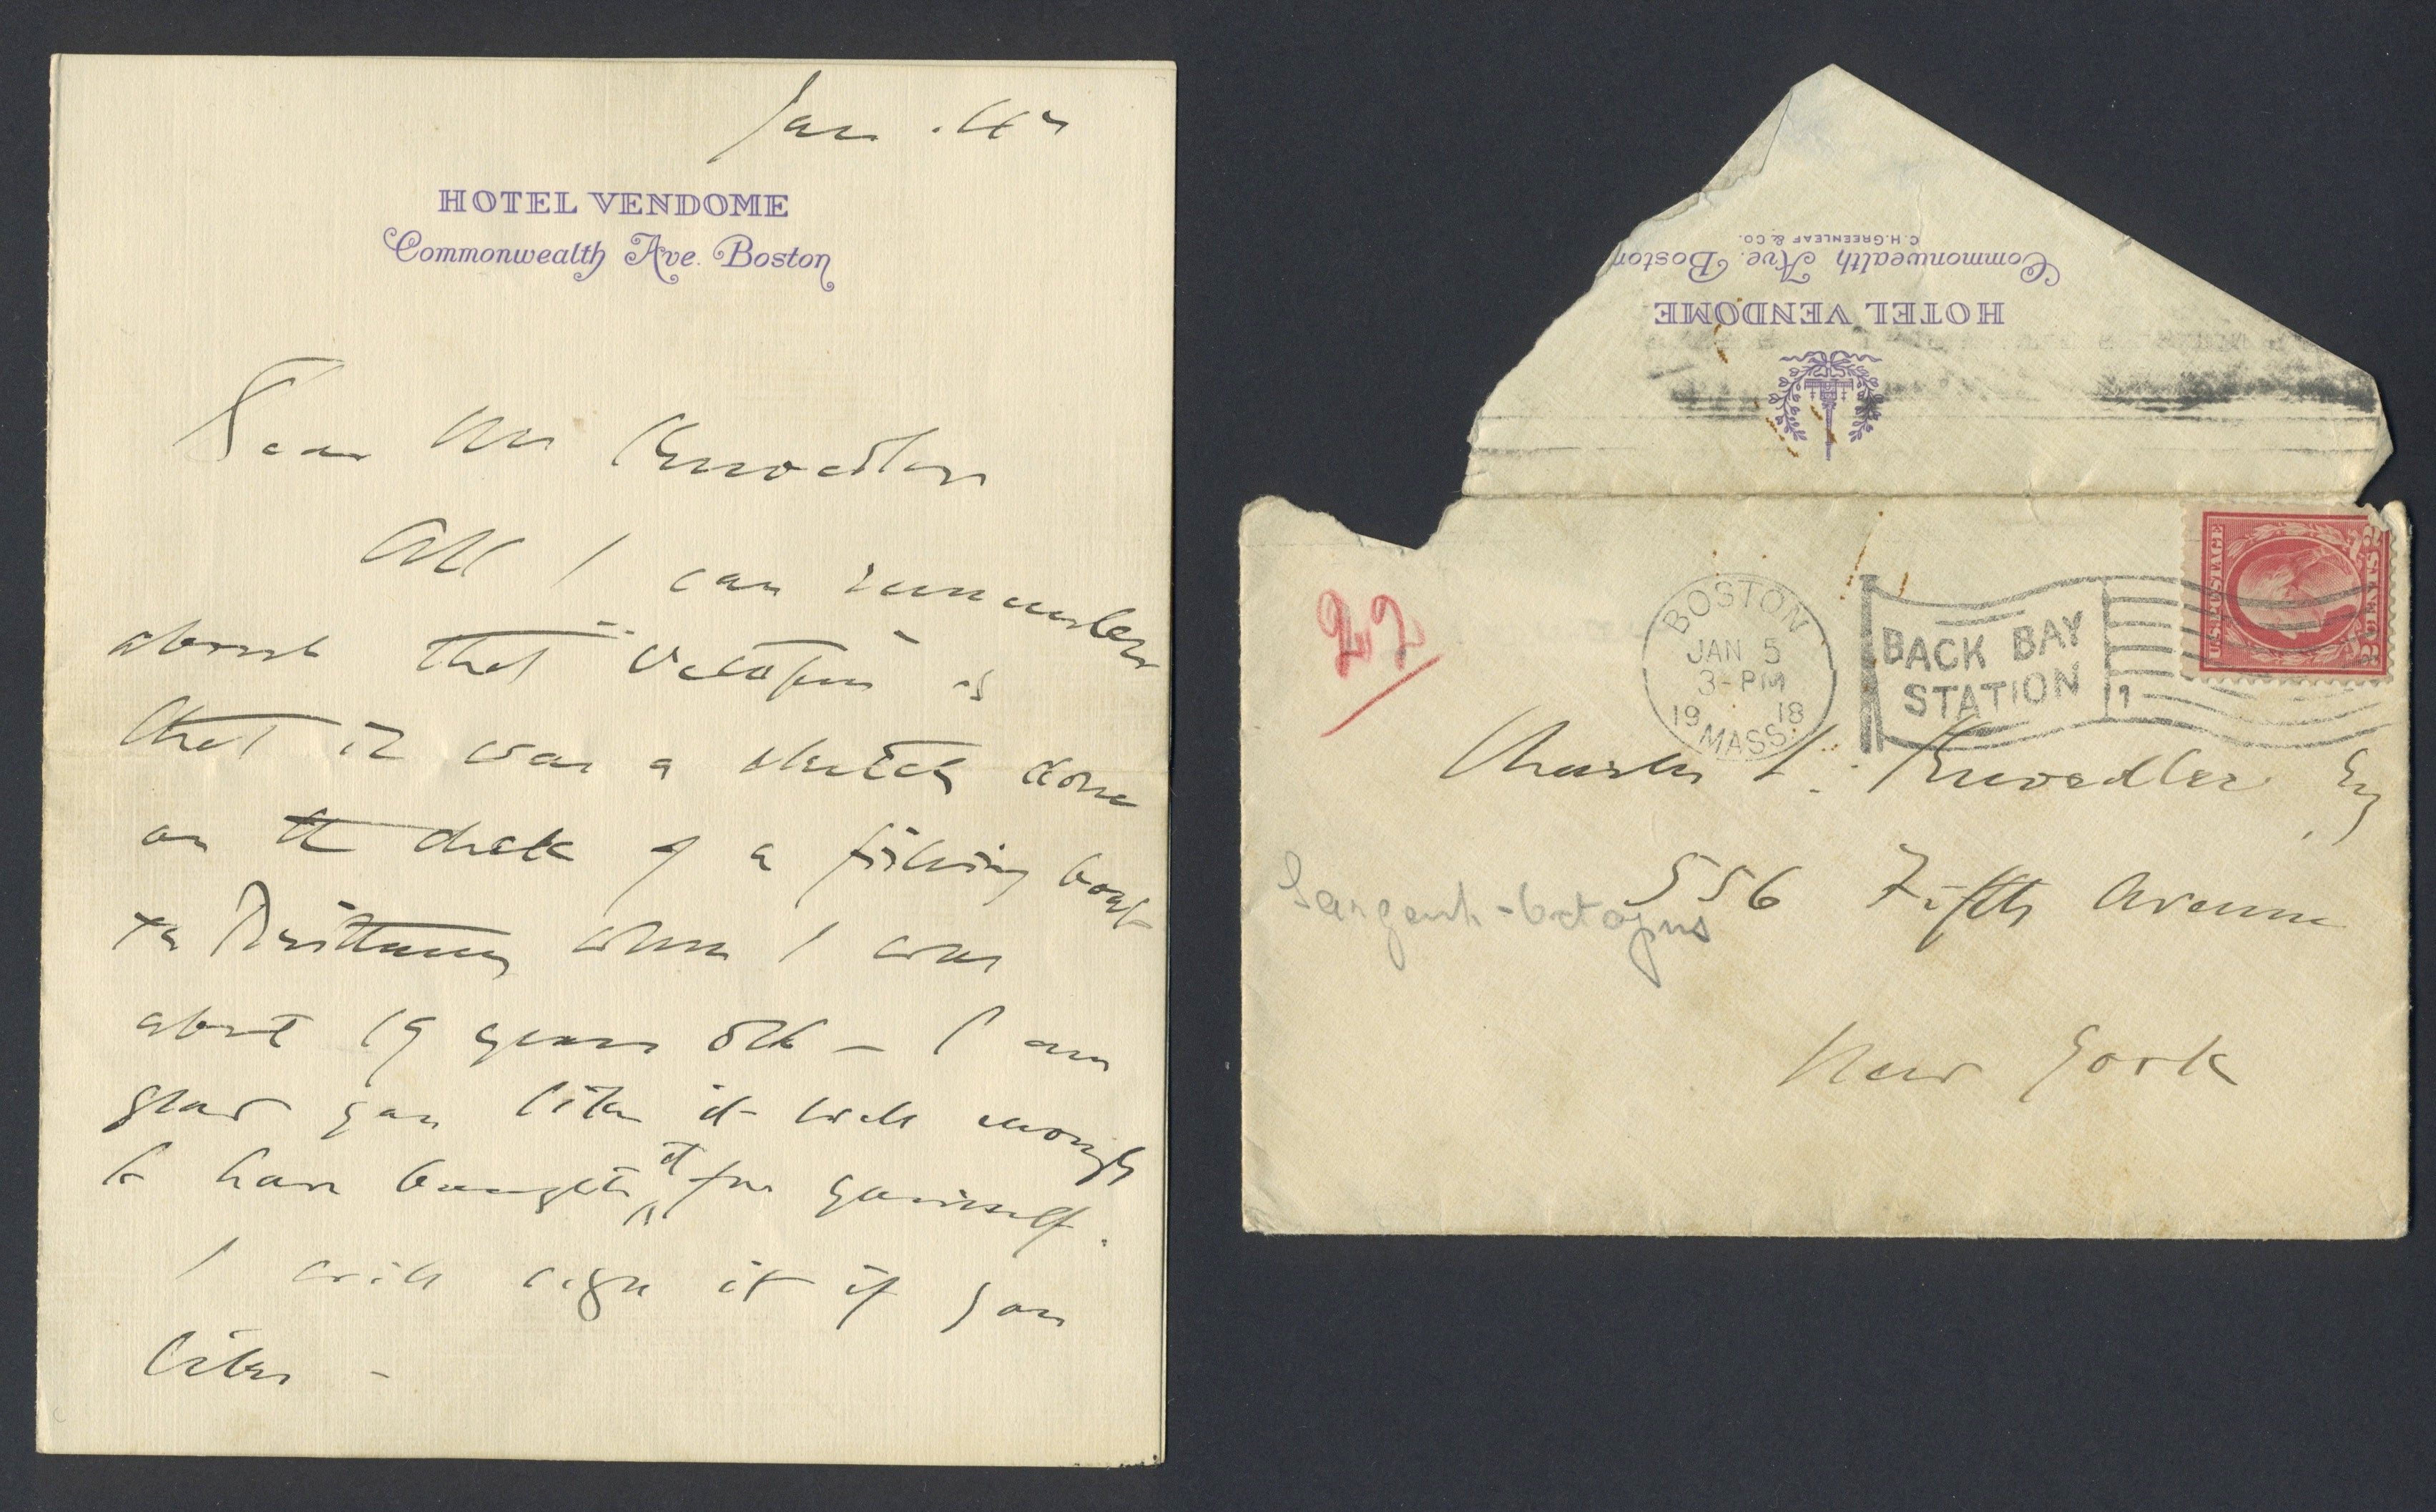 Jan. 4th
HOTEL VENDOME
Commonwealth Ave. Boston
Dear Mr Knoedler
All I can remember
about that "Octopus" is
that it was a sketch done
on the deck of a fishing boat
in Brittany when I was
about 19 years old – I am
glad you like it well enough
to have bought it for yourself.
I will sign it if you
like –
C.H. GREENLEAF & CO.
Commonwealth Ave. Boston
HOTEL VENDOME
22
BOSTON
JAN 5
3-PM
19 18
MASS.
BACK BAY
STATION
1
U.S. POSTAGE
2 CENTS 2
Charles L. Knoedler Esq
556 Fifth Avenue
Sargent-Octopus
New York